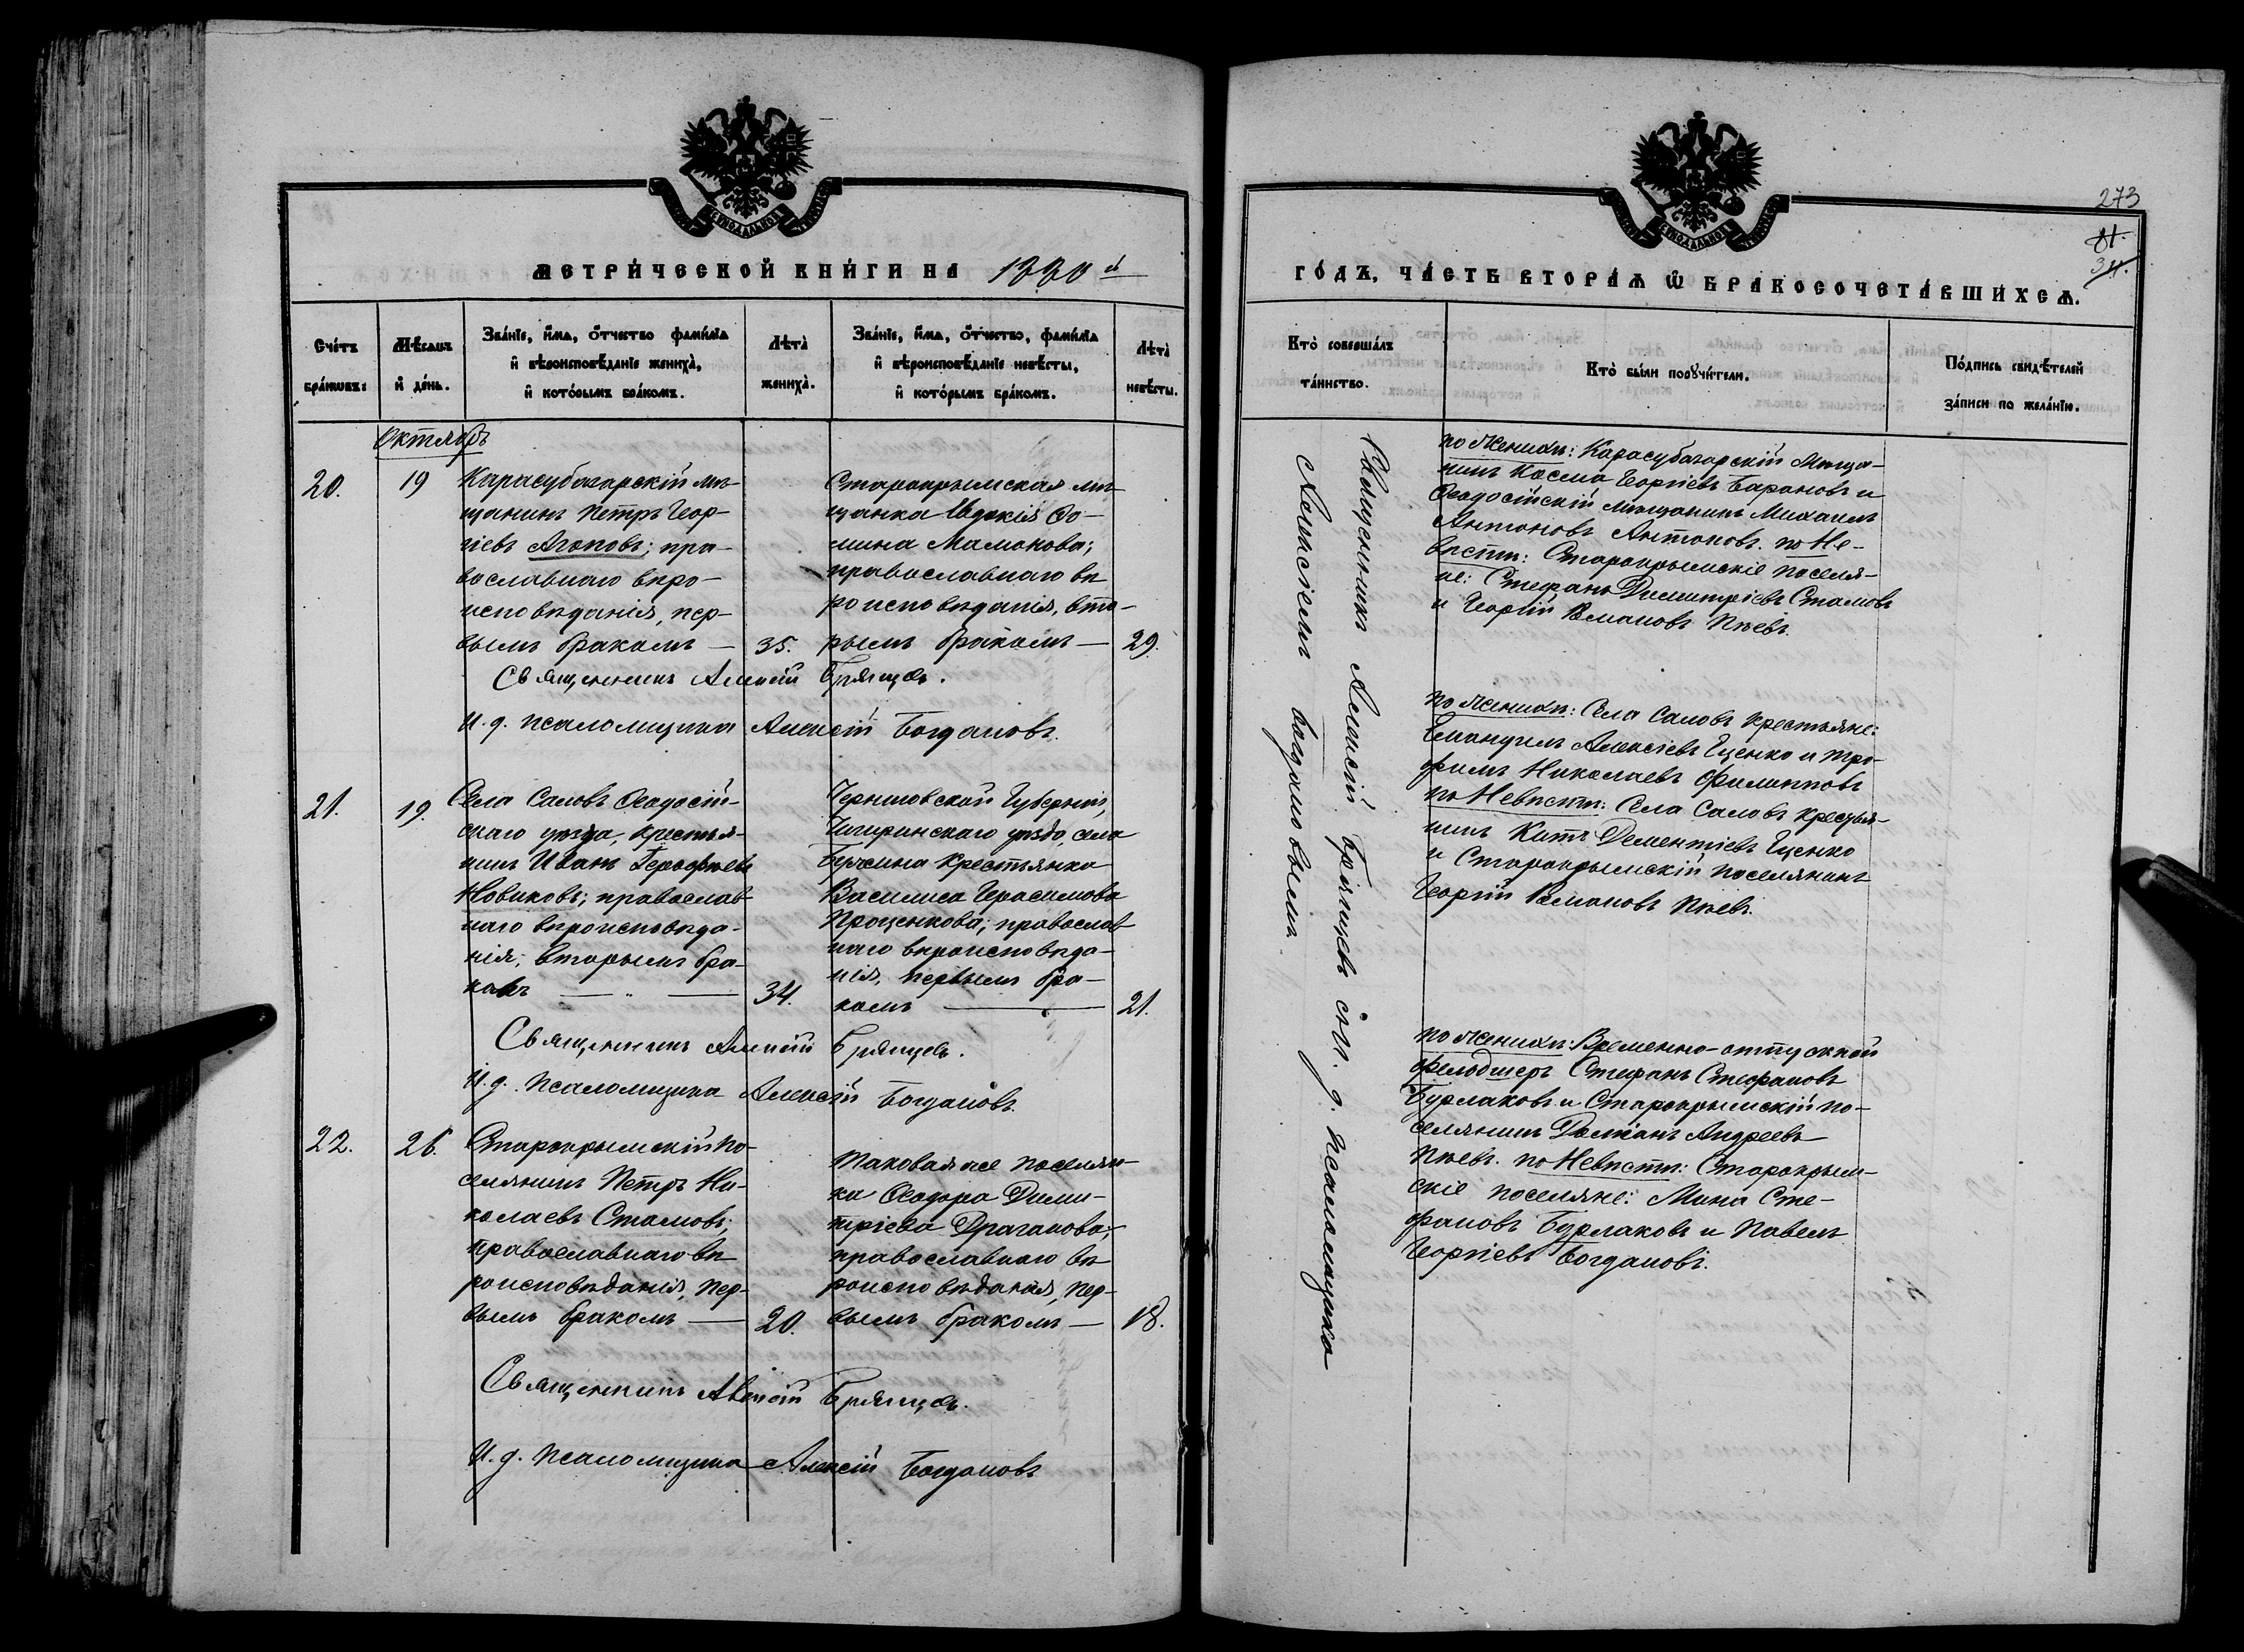 МЕТРИ́ЧЕСКОЙ КНИ́ГИ НА 1880 й
Сче́тъ бра́ковъ:
Мѣ́сяцъ и҆ де́нь.
Зва́нїе, и҆́мѧ, о҆́тчество фами́лїѧ
и҆ вѣроисповѣ́данїе жениха̀,
и҆ кото́рымъ бра́комъ.
Лѣта̀ жениха̀.
Зва́нїе, и҆́мѧ, о҆́тчество, фами́лїѧ
и҆ вѣроисповѣ́данїе невѣ́сты,
и҆ кото́рымъ бра́комъ.
Лѣта̀ невѣ́сты.
Октябрь
20.
19
Карасубазарскій мѣ-
щанинъ Петръ Геор-
гіевъ Агоповъ; пра-
вославнаго вѣро-
исповѣданія, пер-
вымъ бракомъ —
35.
Старокрымская мѣ-
щанка Евдокія Ѳо-
мина Мамокова;
православнаго вѣ
роисповѣданія, вто-
рымъ бракомъ —
29.
Священникъ Алексій Брянцевъ.
И. д. псаломщика Алексій Богдановъ.
21.
19.
Села Саловъ Ѳеодосій-
скаго уѣзда, крестья-
нинъ Иванъ
Новиковъ; православ-
наго вѣроисповѣда-
нія; вторымъ бра-
комъ — " —
34.
Черниговской Губерніи,
Чигиринскаго уѣзда, села
крестьянка
Василиса Герасимова
Проценкова; православ-
наго вѣроисповѣда-
нія, первымъ бра-
комъ —
21.
Священникъ Алексій Брянцевъ.
И. д. Псаломщика Алексій Богдановъ.
22.
26.
Старокрымскій по-
селянинъ Петръ Ни-
колаевъ Стамовъ;
православнаго вѣ
роисповѣданія, пер-
вымъ бракомъ —
20.
таковая же поселян-
ка Ѳеодора Дими-
тріева Драганова;
православнаго вѣ
роисповѣданія, пер-
вымъ бракомъ —
18.
Священникъ Алексій Брянцевъ.
И. д. Псаломщика Алексій Богдановъ
273
81.
34.
ГО́ДЪ, ЧА́СТЬ ВТОРА́Ѧ Ѡ҆ БРАКОСОЧЕТА́ВШИХСѦ.
Кто̀ соверша́лъ
та́инство.
Кто̀ бы́ли порꙋчи́тели.
По́дпись свидѣ́телей
за́писи по жела́нїю.
Священникъ Алексій Брянцевъ съ И. д. псаломщика
Алексіемъ Богдановымъ.
по Женихѣ: Карасубазарскій Мѣща-
нинъ Косма Георгіевъ Барановъ и
Ѳеодосійскій мѣщанинъ Михаилъ
Антоновъ Антоновъ. по Не-
вѣстѣ: Старокрымскіе поселя-
не: Стефанъ Димитріевъ Стамовъ
и Георгій Пѣевъ.
по Женихѣ: Села Саловъ крестьяне:
Емануилъ Алексіевъ Гценко и Тро-
фимъ Николаевъ Филипповъ
по Невѣстѣ: Села Саловъ крестья-
нинъ Дементіевъ Гценко
и Старокрымскій поселянинъ
Георгій Пѣевъ.
по Женихѣ: Временно-отпускной
фельдшеръ Стефанъ Стефановъ
Бурлаковъ и Старокрымскій по-
селянинъ Андреевъ
Пѣевъ. по Невѣстѣ: Старокрым-
скіе поселяне: Мина Сте-
фановъ Бурлаковъ и Павелъ
Георгіевъ Богдановъ.